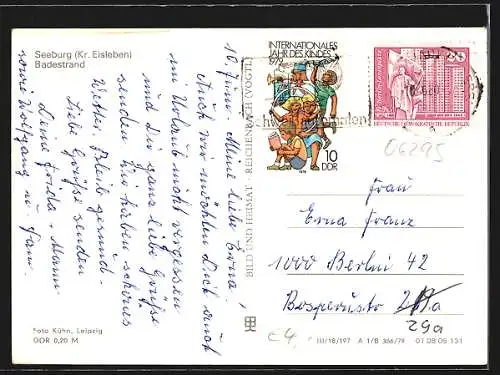 Seeburg (Kr. Eisleben)
Badestrand
10. Juni. Meine liebe Erna!
Auch wir möchten Dich auch
im Urlaub nicht vergessen
und Dir ganz liebe Grüße
senden. Wir haben schönes
Wetter. Bleib gesund.
Liebe Grüße senden
Deine Frida u. Mann
sowie Wolfgang u. Fam.
Foto Kühn, Leipzig
DDR 0,20 M
BILD UND HEIMAT · REICHENBACH (VOGTL)
INTERNATIONALES
JAHR DES KINDES
1979
10
DDR
DEUTSCHE DEMOKRATISCHE REPUBLIK
06295
Frau
Erna Franz
1000 Berlin 42
29a
III/18/197 A 1/B 366/79 01 08 06 131